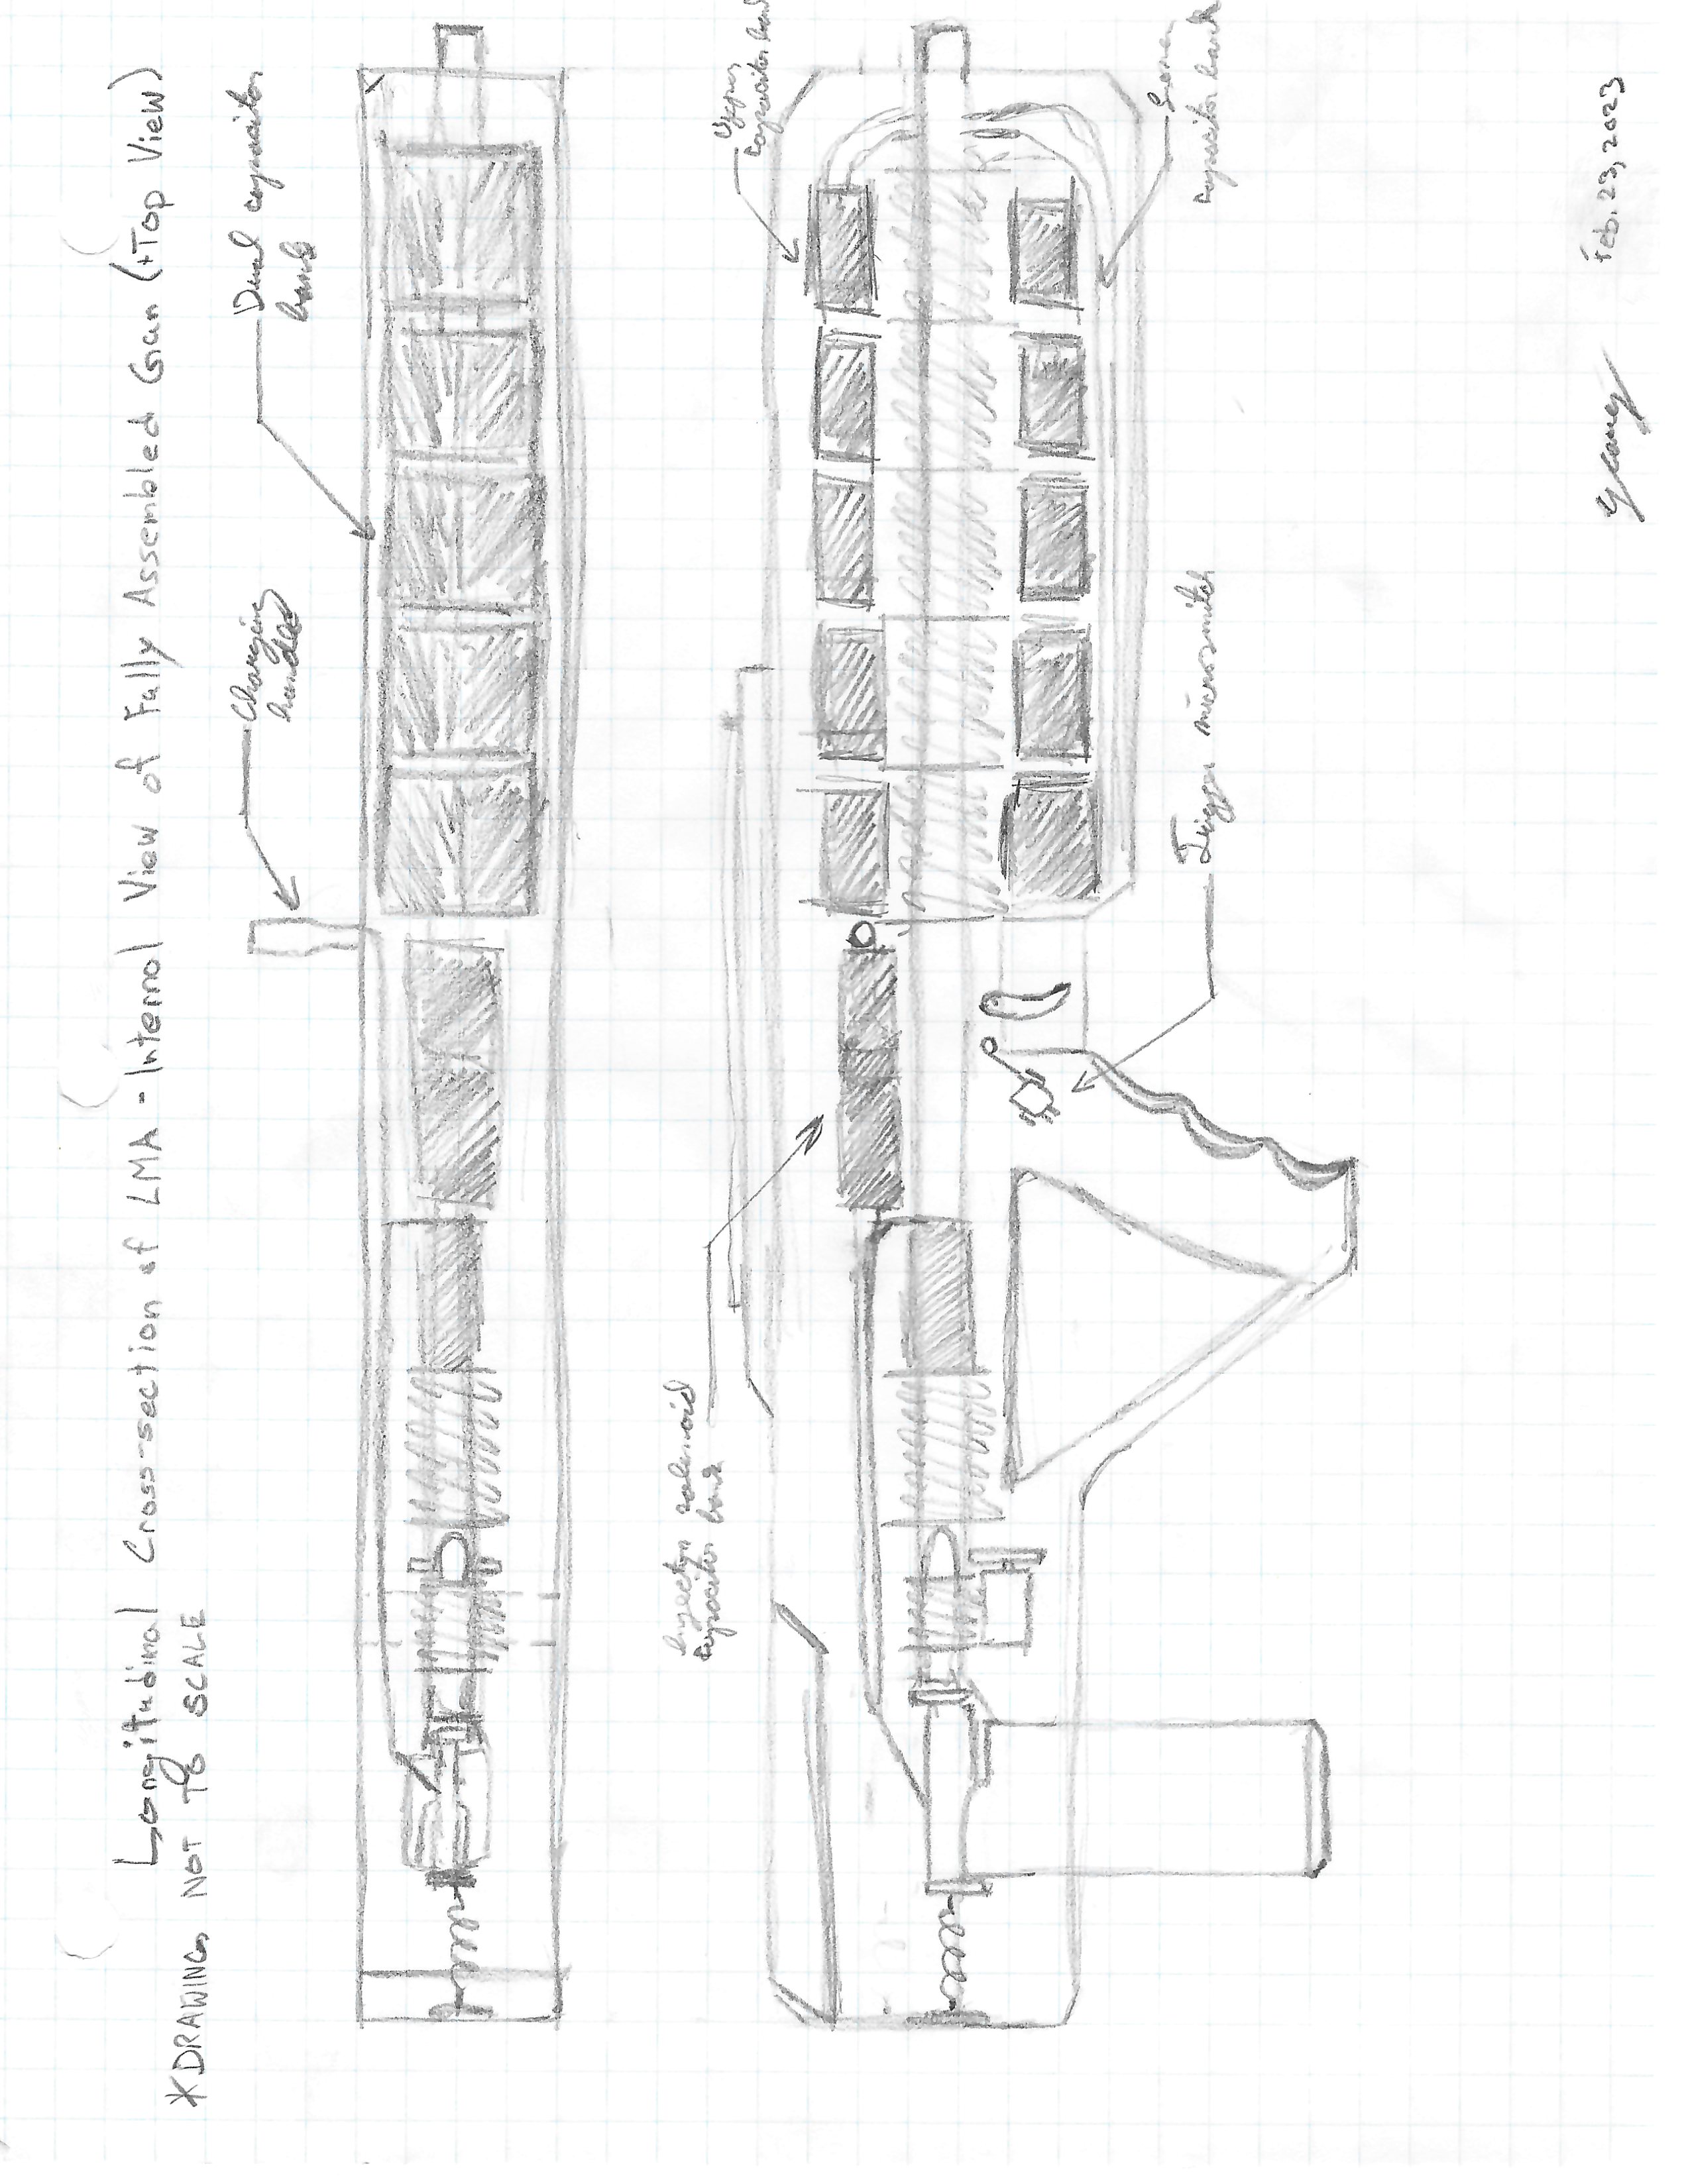 Longitudinal Cross-section of LMA - Internal View of Fully Assembled Gun (+Top View)
*DRAWINGS NOT TO SCALE
Charging
handle
Dual capacitor
bank
Injector solenoid
capacitor bank
Upper
capacitor bank
Trigger microswitch
Lower
capacitor bank
Feb. 23, 2023